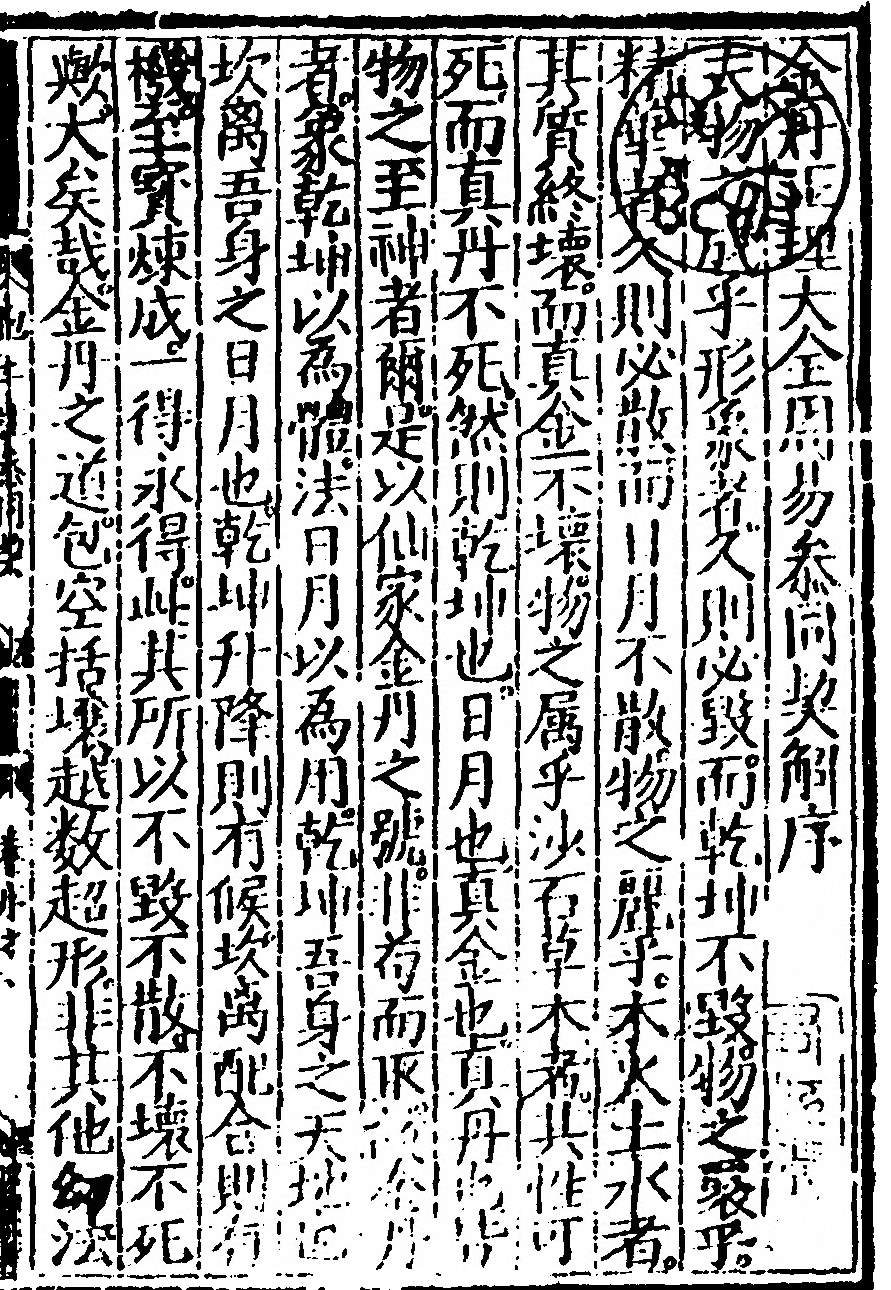 金丹正理大全周易叅同契解序
夫物之成乎形象者久則必毀而乾坤不毀物之聚乎
精華者久則必散而日月不散物之麗乎木火土水者
其質終壞而真金不壞物之属乎沙石草木者其性可
死而真丹不死然則乾坤也日月也真金也真丹也皆
物之至神者爾是以仙家金丹之號非苟而取金丹
者象乾坤以為體法日月以為用乾坤吾身之天地也
坎离吾身之日月也乾坤升降則有候坎离配合則有
機至寶煉成一得永得此其所以不毀不散不壞不死
歟大矣哉金丹之道包空括壞越数超形非其他幻法